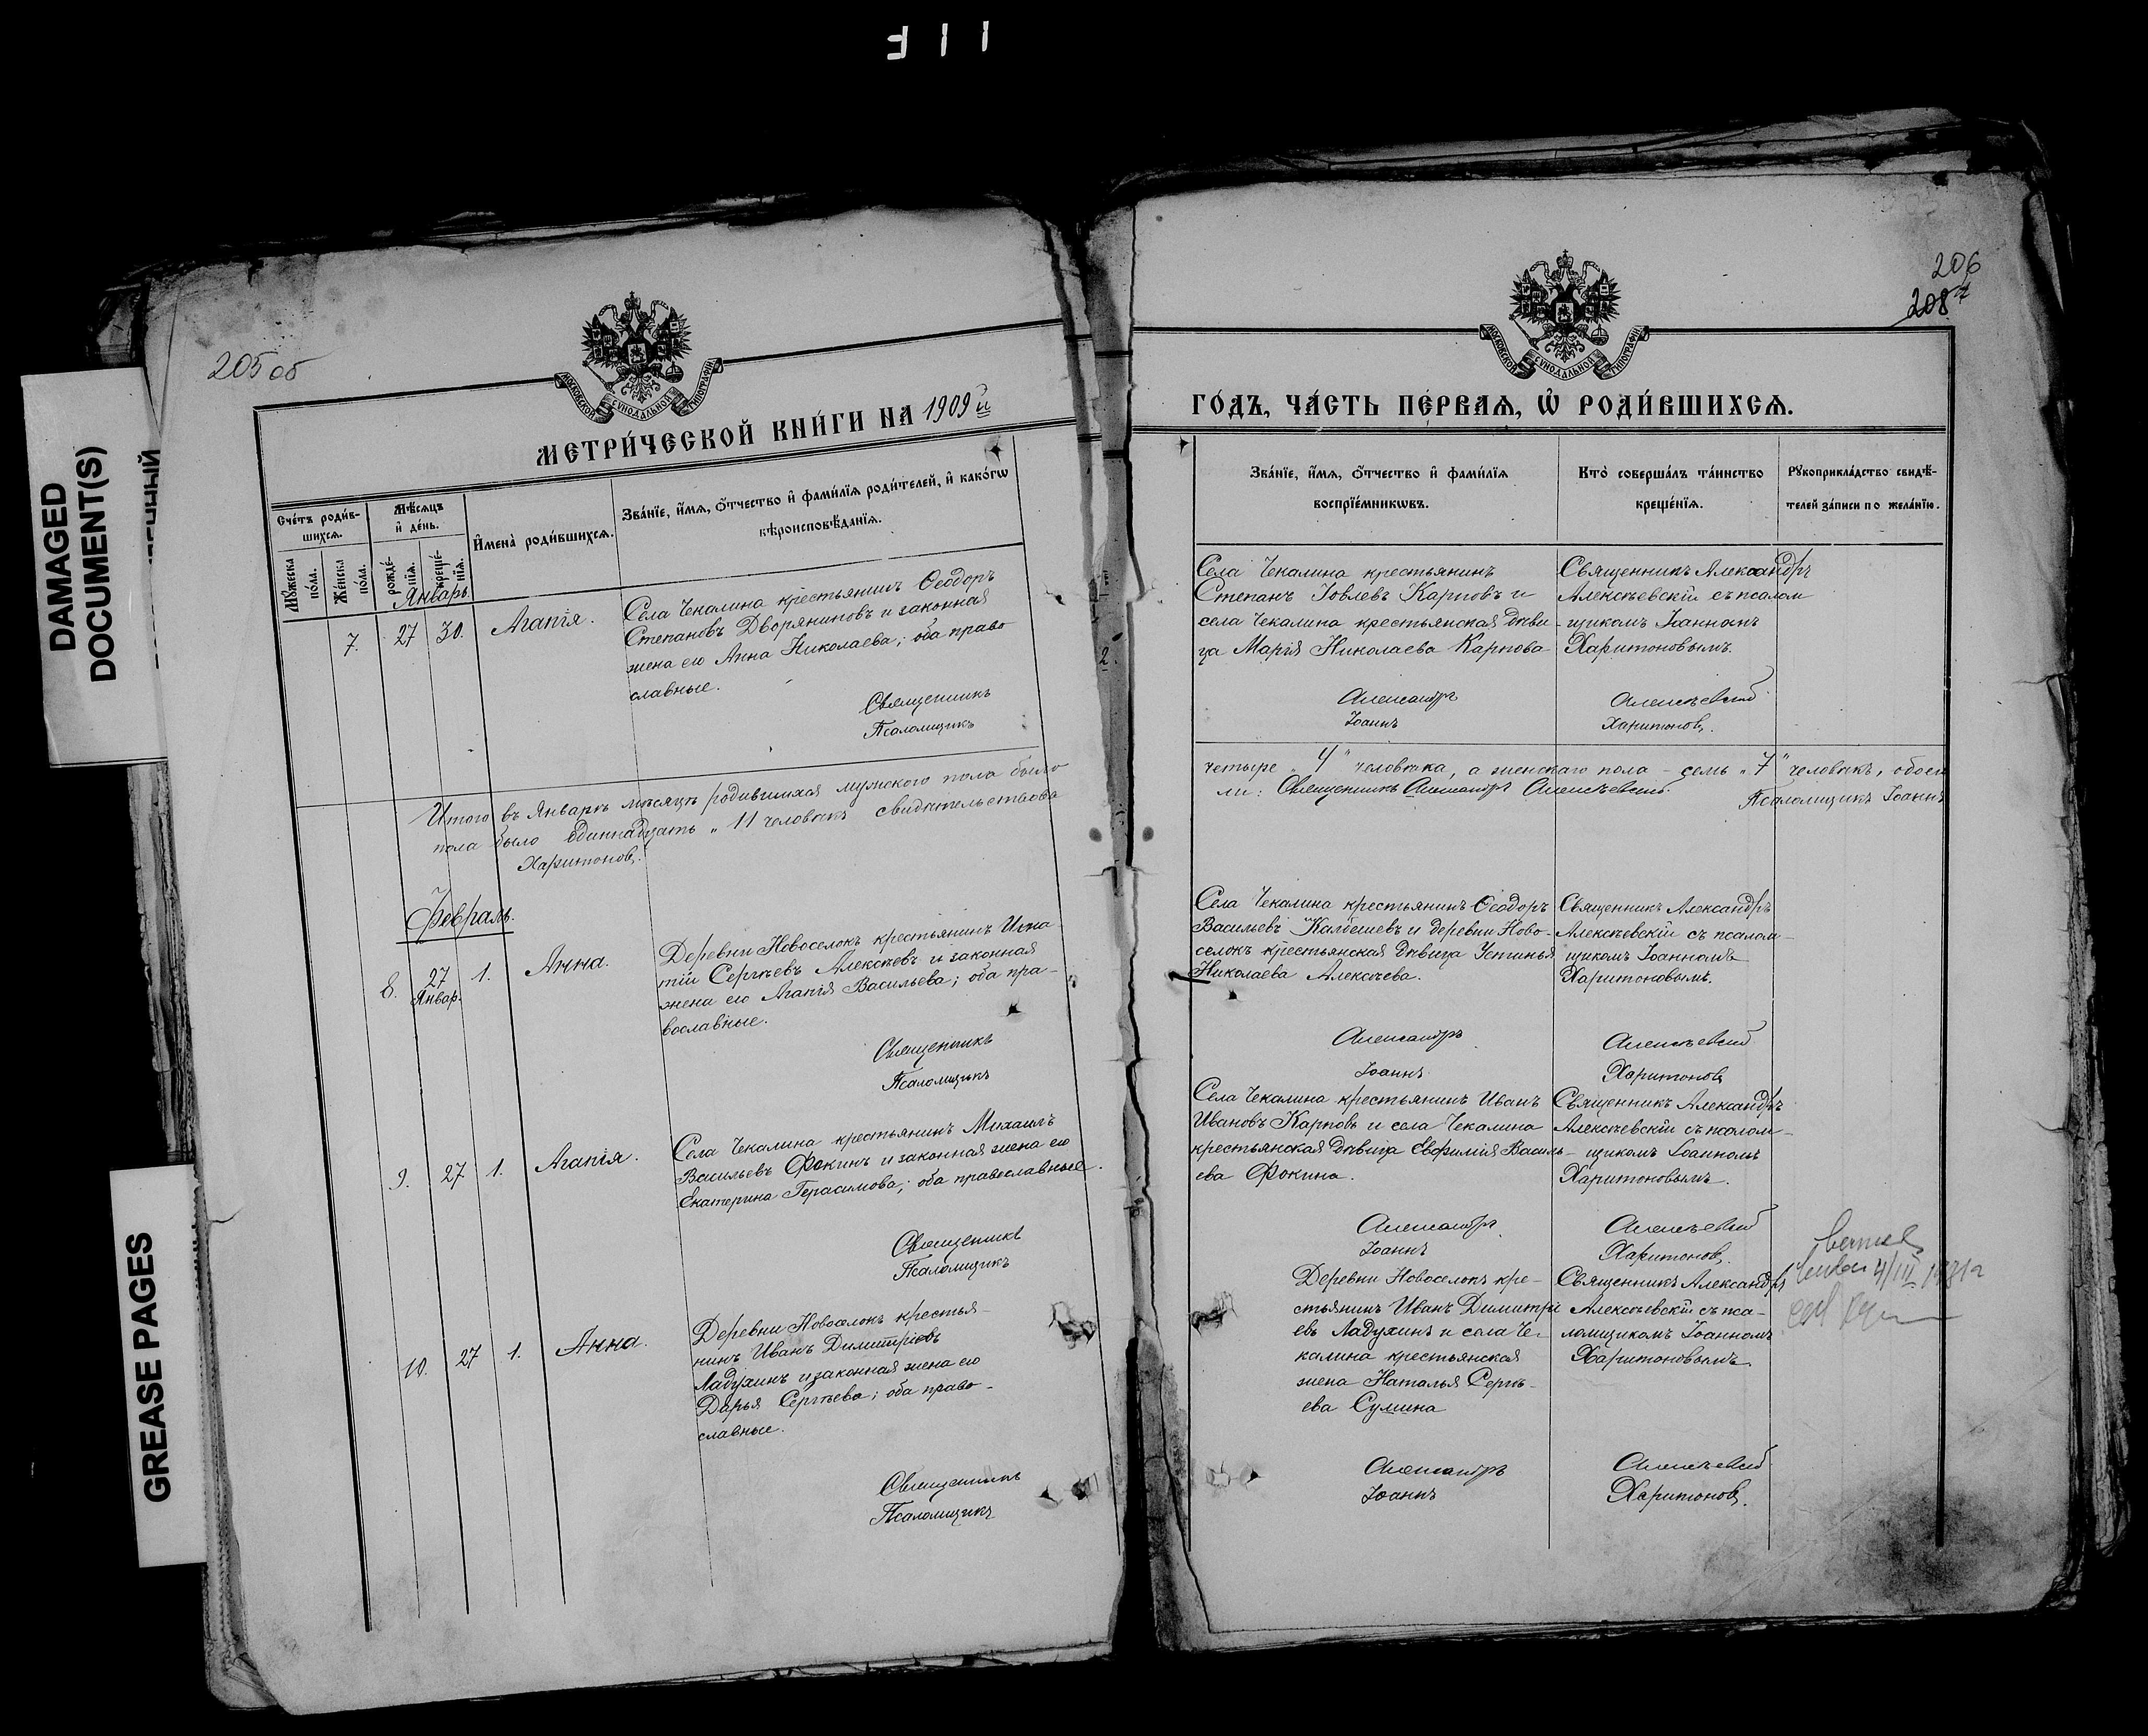 DAMAGED
DOCUMENT(S)
GREASE PAGES
205 об
МОСКОВСКОЙ СУНОДАЛЬНОЙ ТИПОГРАФІИ
МЕТРИ́ЧЕСКОЙ КНИ́ГИ НА 1909 й
Сче́тъ роди́в-
шихсѧ.
Мꙋ́жеска
по́ла.
Же́нска
по́ла.
Мѣ́сяцъ
и҆ де́нь.
рожде́-
нїѧ.
креще́-
нїѧ.
И҆мена̀ роди́вшихсѧ.
Зва́нїе, и҆́мѧ, ѻ҆́тчество и҆ фами́лїѧ роди́телей, и҆ како́гѡ
вѣроисповѣ́данїѧ.
Январь.
7. 27 30. Агапія.
Села Чекалина крестьянинъ Ѳеодоръ
Степановъ Дворяниновъ и законная
жена его Анна Николаева; оба право
славные.
Священникъ
Псаломщикъ
Итого въ Январѣ мѣсяцѣ родившихся мужского пола было
пола было одиннадцать „ 11 человѣкъ свидѣтельствова
Харитоновъ.
Февраль.
8. 27 1. Анна.
Январ.
Деревни Новоселокъ крестьянинъ Игна
тій Сергѣевъ Алексѣевъ и законная
жена его Агапія Васильева; оба пра-
вославные.
Священникъ
Псаломщикъ
9. 27 1. Агапія.
Села Чекалина крестьянинъ Михаилъ
Васильевъ Фокинъ и законная жена его
Екатерина Герасимова; оба православные.
Священникъ
Псаломщикъ
10. 27 1. Анна.
Деревни Новоселокъ крестья-
нинъ Иванъ Димитріевъ
Ладухинъ и законная жена его
Дарья Сергѣева; оба право-
славные.
Священникъ
Псаломщикъ
206
208
7
МОСКОВСКОЙ СУНОДАЛЬНОЙ ТИПОГРАФІИ
ГО́ДЪ, ЧА́СТЬ ПЕ́РВАѦ, Ѡ҆ РОДИ́ВШИХСѦ.
Зва́нїе, и҆́мѧ, ѻ҆́тчество и҆ фами́лїѧ
воспрїе́мникѡвъ.
Кто̀ соверша́лъ та́инство
креще́нїѧ.
Рꙋкоприкла́дство свидѣ́-
телей за́писи по жела́нїю.
Села Чекалина крестьянинъ
Степанъ Іовлевъ Карповъ и
села Чекалина крестьянская дѣви-
ца Марія Николаева Карпова
Священникъ Александръ
Алексѣевскій съ псалом
щикомъ Іоанномъ
Харитоновымъ.
Александръ Алексѣевскій
Іоаннъ Харитоновъ.
четыре „ 4 " человѣка, а женскаго пола - семь „ 7 " человѣкъ, обоего
ли: Священникъ Александръ Алексѣевскій.
Псаломщикъ Іоаннъ
Села Чекалина крестьянинъ Ѳеодоръ
Васильевъ Калбешевъ и деревни Ново-
селокъ крестьянская дѣвица Устинья
Николаева Алексѣева.
Священникъ Александръ
Алексѣевскій съ псалом-
щикомъ Іоанномъ
Харитоновымъ.
Александръ Алексѣевскій
Іоаннъ Харитоновъ
Села Чекалина крестьянинъ Иванъ
Ивановъ Карповъ и села Чекалина
крестьянская дѣвица Евфимія Василь-
ева Фокина.
Священникъ Александръ
Алексѣевскій съ псалом-
щикомъ Іоанномъ
Харитоновымъ.
Александръ Алексѣевскій
Іоаннъ Харитоновъ.
Деревни Новоселокъ кре-
стьянинъ Иванъ Димитрі
евъ Ладухинъ и села Че-
калина крестьянская
жена Наталья Сергѣ-
ева Сумина
Священникъ Александръ
Алексѣевскій съ пса-
ломщикомъ Іоанномъ
Харитоновымъ.
4/III
Александръ Алексѣевскій
Іоаннъ Харитоновъ.